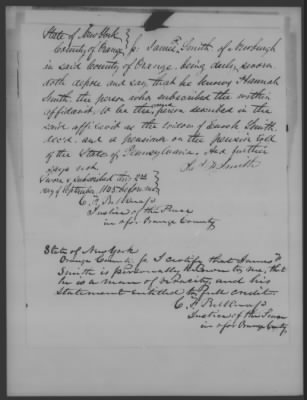 State of New York
County of Orange } ss. James Smith of Newburgh
in said County of Orange, being duly sworn
doth depose and say that he knows Hannah
Smith, the person who subscribed the within
affidavit, to be the person described in the
said affidavit as the widow of Enoch Smith,
decd. and a pensioner on the pension roll
of the State of Pennsylvania. And further
says not.
Smith
Sworn & subscribed this 2nd
day of September 1845 before me
C. F.
Justice of the Peace
in & for Orange County
State of New York
Orange County ss I certify that James
Smith is personally known to me, that
he is a man of veracity and his
statement entitled to full credit.
C. F.
Justice of the Peace
in & for Orange County